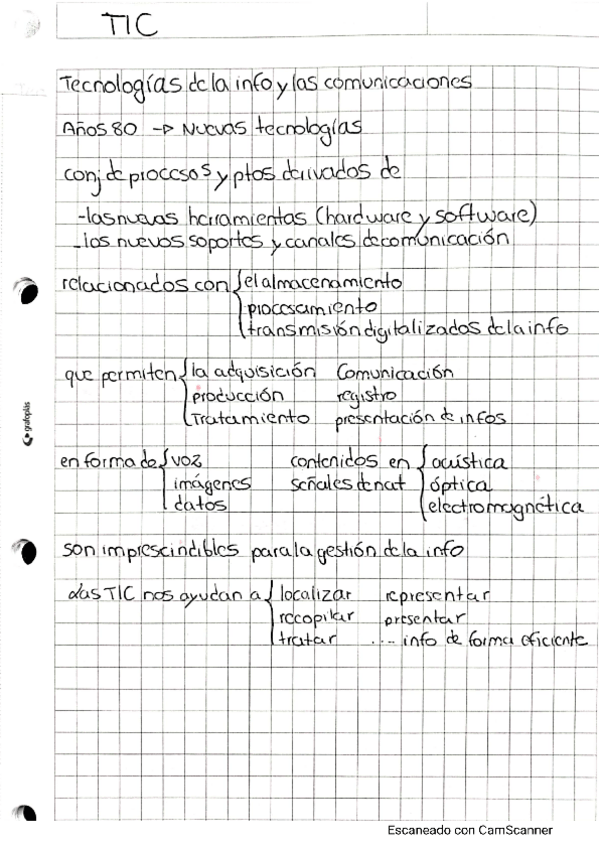 TIC
Tecnologías de la info y las comunicaciones
Años 80 → Nuevas tecnologías
conj de procesos y ptos derivados de
-las nuevas herramientas (hardware y software)
-los nuevos soportes y canales de comunicación
relacionados con { el almacenamiento
procesamiento
transmisión digitalizados de la info
que permiten { la adquisición Comunicación
producción registro
Tratamiento presentación de infos
en forma de { voz contenidos en { acústica
imágenes señales de nat { óptica
datos electromagnética
grafoplás
son imprescindibles para la gestión de la info
las TIC nos ayudan a { localizar representar
recopilar presentar
tratar .... info de forma eficiente
Escaneado con CamScanner